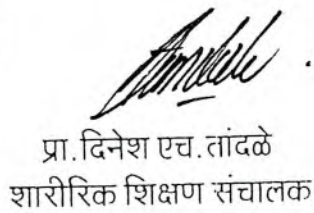 प्रा. दिनेश एच. तांदळे
शारीरिक शिक्षण संचालक